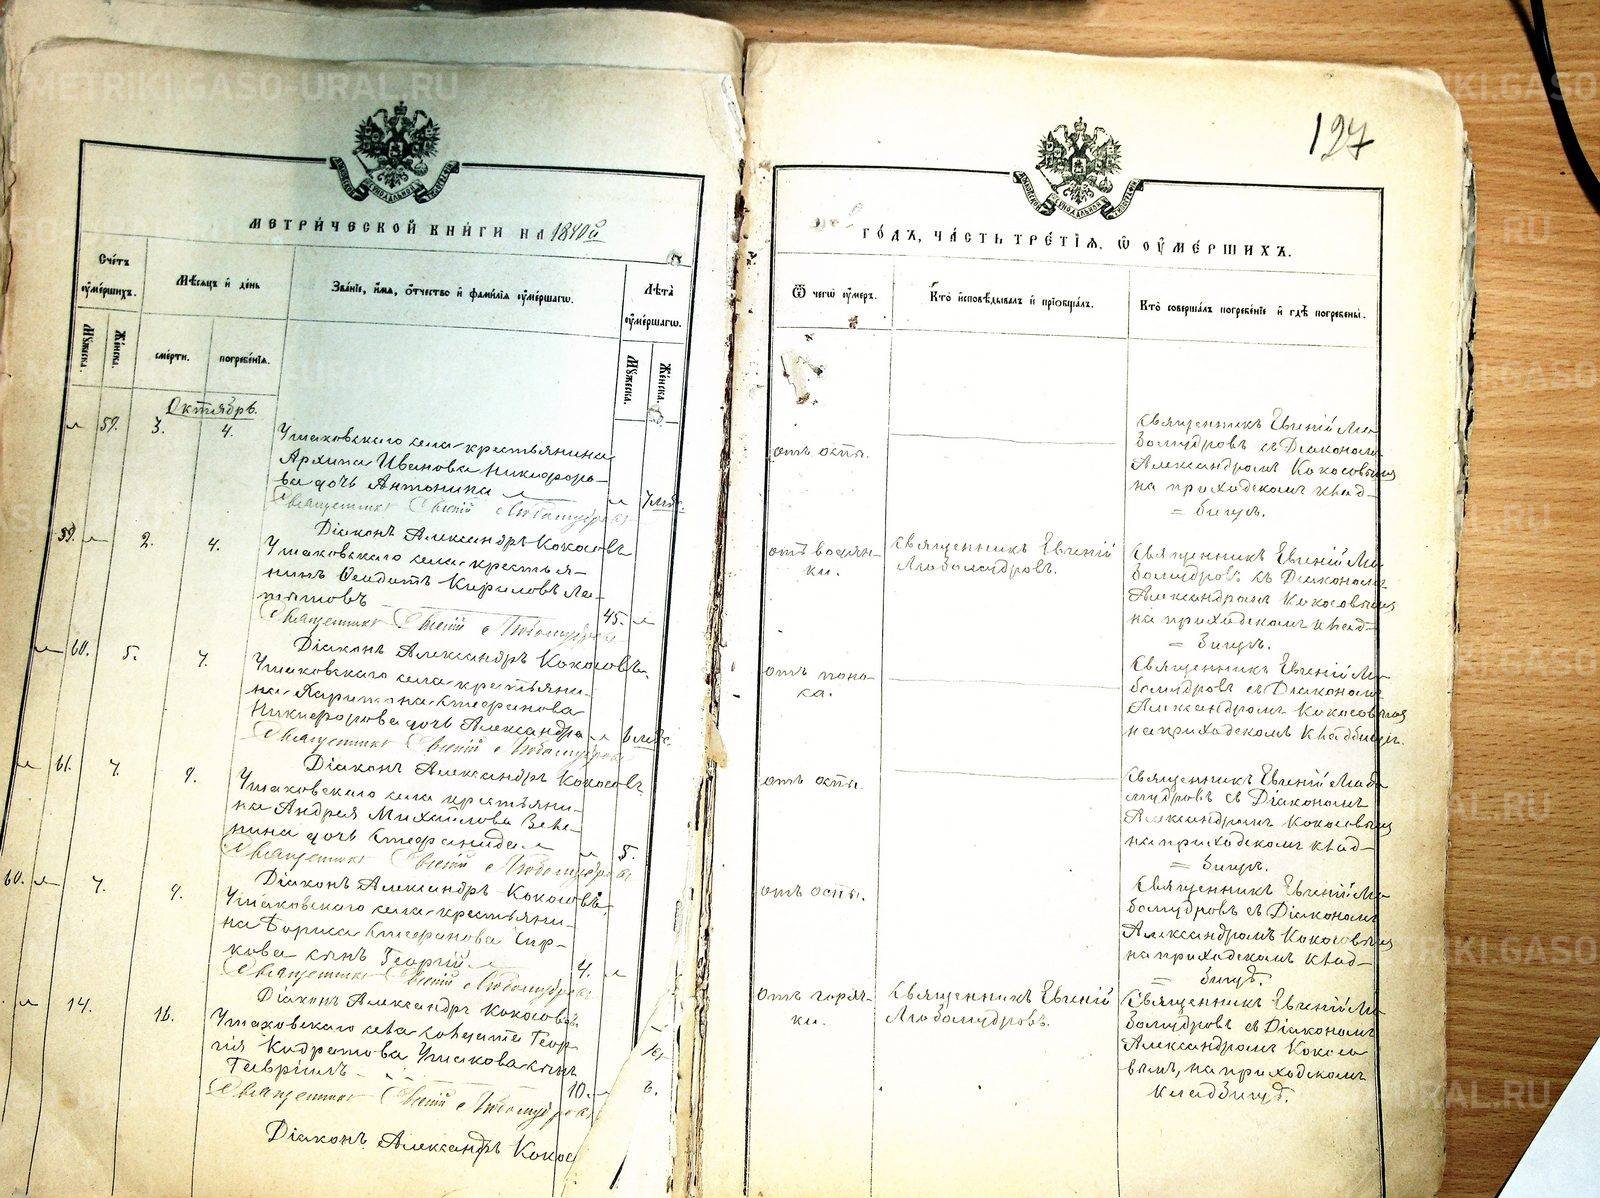 127
МЕТРИ́ЧЕСКОЙ КНИ́ГИ НА 18
Сче́тъ ᲂу҆ме́ршихъ.
Мѣ́сяцъ и҆ де́нь
Зва́нїе, и҆́мя, ѻ҆́тчество и҆ фами́лїя ᲂу҆ме́ршагѡ.
Лѣ́та ᲂу҆ме́ршагѡ.
Мꙋ́жеска.
Же́нска.
сме́рти.
погребе́нїя.
Мꙋ́жеска.
Же́нска.
Октябрь.
59. 3. 4.
Ушаковскаго села крестьянина
Архипа Иванова Никифоро-
ва дочь Антонина
7 мѣс.
Священникъ Евгеній Любомудровъ
Діаконъ Александръ Кокосовъ
59. 2. 4.
Ушаковскаго села крестья-
нинъ Ѳедотъ Кириловъ
45.
Священникъ Евгеній Любомудровъ
Діаконъ Александръ Кокосовъ
60. 5. 7.
Ушаковскаго села крестьяни-
на Харитона Стефанова
Никифорова дочь Александра
6 мѣс.
Священникъ Евгеній Любомудровъ
Діаконъ Александръ Кокосовъ
61. 7. 9.
Ушаковскаго села крестьяни-
на Андрея Михайлова
дочь Стефанида
5.
Священникъ Евгеній Любомудровъ
Діаконъ Александръ Кокосовъ
60. 7. 9.
Ушаковскаго села крестьяни-
на Бориса Стефанова Чир-
кова сынъ Георгій
4.
Священникъ Евгеній Любомудровъ
Діаконъ Александръ Кокосовъ
14. 16.
Ушаковскаго села солдата Геор-
гія Кодратова Ушакова сынъ
Гавріилъ
10.
Священникъ Евгеній Любомудровъ
Діаконъ Александръ Кокос
ГО́ДЪ, ЧА́СТЬ ТРЕ́ТЇЯ, Ѡ҆ ОУ҆МЕ́РШИХЪ.
Ѿ чегѡ̀ ᲂу҆́меръ.
Кто̀ и҆сповѣ́дывалъ и҆ прїѡбща́лъ.
Кто̀ соверша́лъ погребе́нїе и҆ гдѣ̀ погребены̀.
отъ оспы.
Священникъ Евгеній Лю-
бомудровъ съ Діакономъ
Александромъ Кокосовымъ
на приходскомъ клад-
= бищѣ.
отъ водян-
ки.
Священникъ Евгеній
Любомудровъ.
Священникъ Евгеній Лю-
бомудровъ съ Діакономъ
Александромъ Кокосовымъ
на приходскомъ клад-
= бищѣ.
отъ поно-
са.
Священникъ Евгеній Лю-
бомудровъ съ Діакономъ
Александромъ Кокосовымъ
на приходскомъ кладбищѣ.
отъ оспы.
Священникъ Евгеній Любо
мудровъ съ Діакономъ
Александромъ Кокосовымъ
на приходскомъ клад-
= бищѣ.
отъ оспы.
Священникъ Евгеній Лю-
бомудровъ съ Діакономъ
Александромъ Кокосовымъ
на приходскомъ клад-
= бищѣ.
отъ горяч-
ки.
Священникъ Евгеній
Любомудровъ.
Священникъ Евгеній Лю-
бомудровъ съ Діакономъ
Александромъ Кокосо-
вымъ, на приходскомъ
кладбищѣ.
METRIKI.GASO-URAL.RU